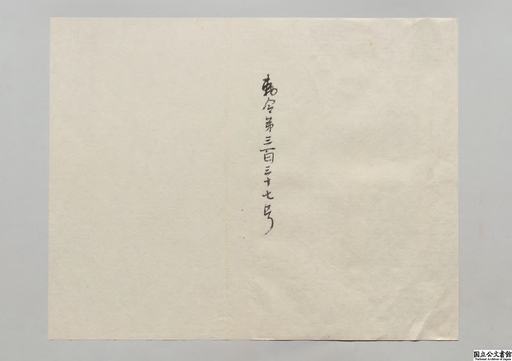 勅令第三百三十七号
国立公文書館
National Archives of Japan